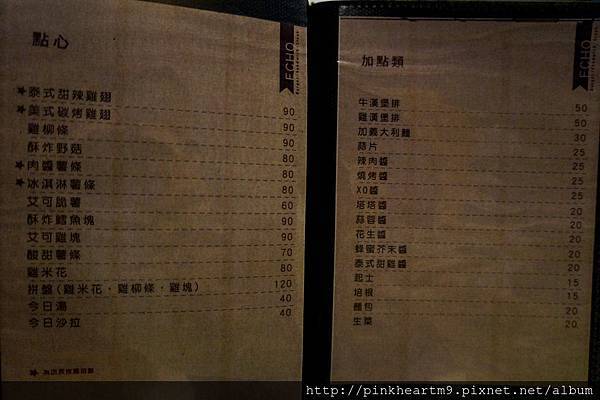 點心
ECHO
★泰式甜辣雞翅 90
★美式碳烤雞翅 90
雞柳條 90
酥炸野菇 80
★肉醬薯條 80
★冰淇淋薯條 80
艾可脆薯 60
酥炸鱈魚塊 90
艾可雞塊 90
酸甜薯條 70
雞米花 80
拼盤(雞米花、雞柳條、雞塊) 120
今日湯 40
今日沙拉 40
加點類
ECHO
牛漢堡排 50
雞漢堡排 50
加義大利麵 30
蒜片 25
辣肉醬 25
燒烤醬 25
XO醬 25
塔塔醬 20
蒜蓉醬 20
花生醬 20
蜂蜜芥末醬 20
泰式甜雞醬 20
起士 15
培根 15
麵包 20
生菜 20
http://pinkheartm9.pixnet.net/album